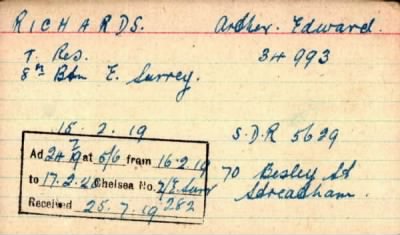 RICHARDS. Arther. Edward.
T. Res. 34993
8th Btn E. Surrey.
15.2.19 S.D.R 5629
Ad 24 at 5/6 from 16.2.19
to 17.2.20 Chelsea No. 2/E.Surr 70 Besley St
Received 25.7.19 282 Streatham.